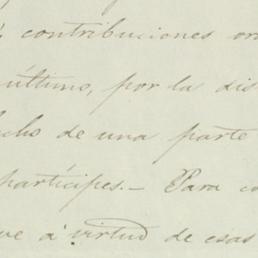 contribuciones or
último, por la dis
cho de una parte
partícipes.— Para c
ve á virtud de esas